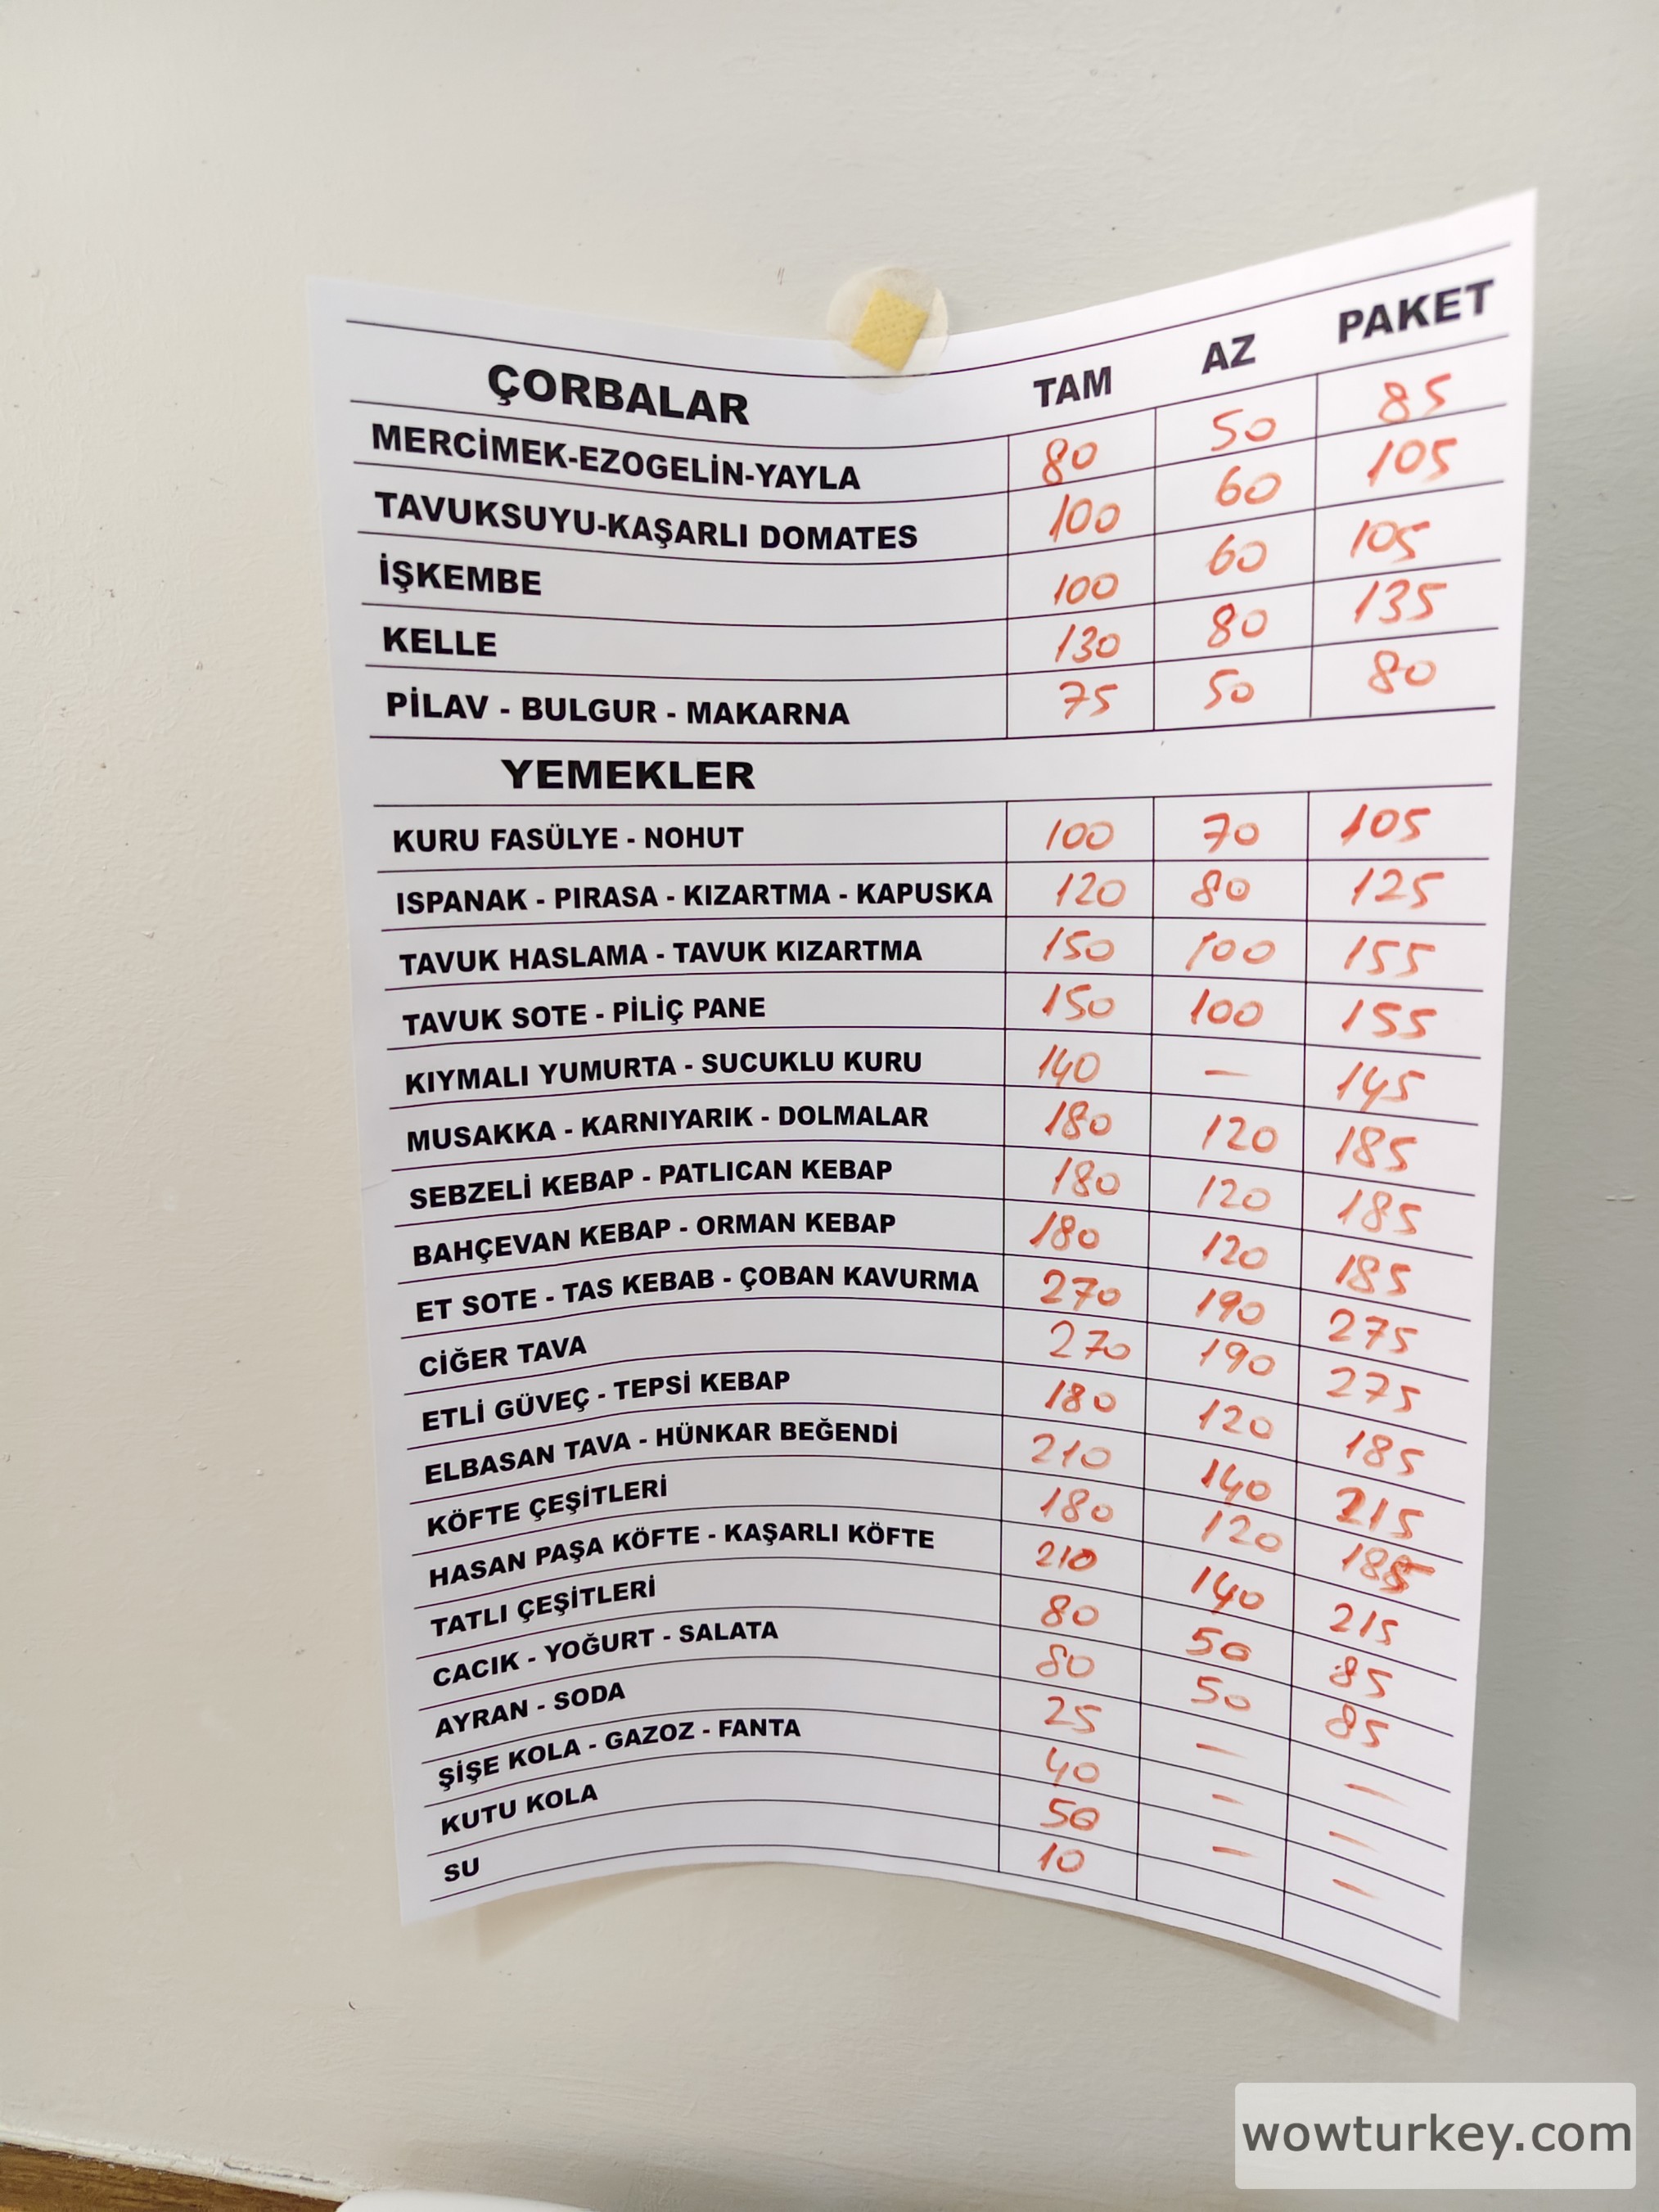 ÇORBALAR TAM AZ PAKET
MERCİMEK-EZOGELİN-YAYLA 80 50 85
TAVUKSUYU-KAŞARLI DOMATES 100 60 105
İŞKEMBE 100 60 105
KELLE 130 80 135
PİLAV - BULGUR - MAKARNA 75 50 80
YEMEKLER
KURU FASÜLYE - NOHUT 100 70 105
ISPANAK - PIRASA - KIZARTMA - KAPUSKA 120 80 125
TAVUK HASLAMA - TAVUK KIZARTMA 150 100 155
TAVUK SOTE - PİLİÇ PANE 150 100 155
KIYMALI YUMURTA - SUCUKLU KURU 140 — 145
MUSAKKA - KARNIYARIK - DOLMALAR 180 120 185
SEBZELİ KEBAP - PATLICAN KEBAP 180 120 185
BAHÇEVAN KEBAP - ORMAN KEBAP 180 120 185
ET SOTE - TAS KEBAB - ÇOBAN KAVURMA 270 190 275
CİĞER TAVA 270 190 275
ETLİ GÜVEÇ - TEPSİ KEBAP 180 120 185
ELBASAN TAVA - HÜNKAR BEĞENDİ 210 140 215
KÖFTE ÇEŞİTLERİ 180 120 185
HASAN PAŞA KÖFTE - KAŞARLI KÖFTE 210 140 215
TATLI ÇEŞİTLERİ 80 50 85
CACIK - YOĞURT - SALATA 80 50 85
AYRAN - SODA 25 — —
ŞİŞE KOLA - GAZOZ - FANTA 40 — —
KUTU KOLA 50 — —
SU 10
wowturkey.com